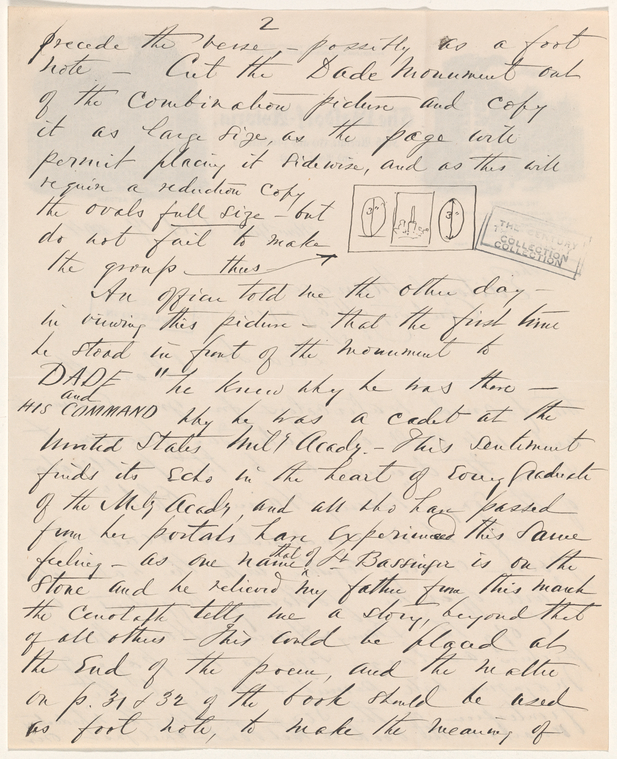 2
precede the verse – possibly as a foot
note – Cut the Dade Monument out
of the combination picture and copy
it as large size, as the page will
permit placing it sidewise, and as this will
require a reduction copy
the ovals full size – but
do not fail to make
the group thus
3"
3"
THE CENTURY
COLLECTION
COLLECTION
An officer told me the other day –
in viewing this picture – that the first time
he stood in front of the monument to
DADE "he knew why he was there –
and
HIS COMMAND why he was a cadet at the
United States Mily Acady. – This sentiment
finds its Echo in the heart of Every Graduate
of the Mily Acady, and all who have passed
from her portals have experienced this same
feeling – as one name that of Lt Bassinger is on the
Stone and he relieved my father from this march
the cenotaph tells me a story, beyond that
of all others – This could be placed at
the End of the poem, and the matter
on p. 31 & 32 of the book should be used
as foot note, to make the meaning of